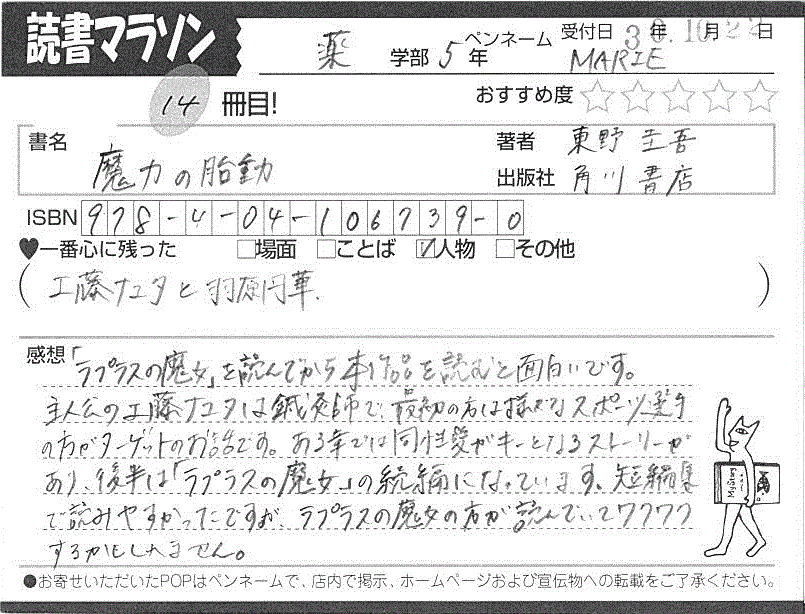 読書マラソン
薬 学部 5 年 ペンネーム MARIE 受付日 30年10月22日
14 冊目! おすすめ度 ☆☆☆☆☆
書名 魔力の胎動
著者 東野圭吾
出版社 角川書店
ISBN 978-4-04-106739-0
♥一番心に残った □場面 □ことば ☑人物 □その他
(工藤ナユタと羽原円華.)
感想「ラプラスの魔女」を読んでから本作品を読むと面白いです。
主人公の工藤ナユタは鍼灸師で、最初の方は様々なスポーツ選手
の方がターゲットのお話です。ある章では同性愛がキーとなるストーリーが
あり、後半は「ラプラスの魔女」の続編になっています。短編集
で読みやすかったですが、ラプラスの魔女の方が読んでいてワクワク
するかもしれません。
●お寄せいただいたPOPはペンネームで、店内で掲示、ホームページおよび宣伝物への転載をご了承ください。